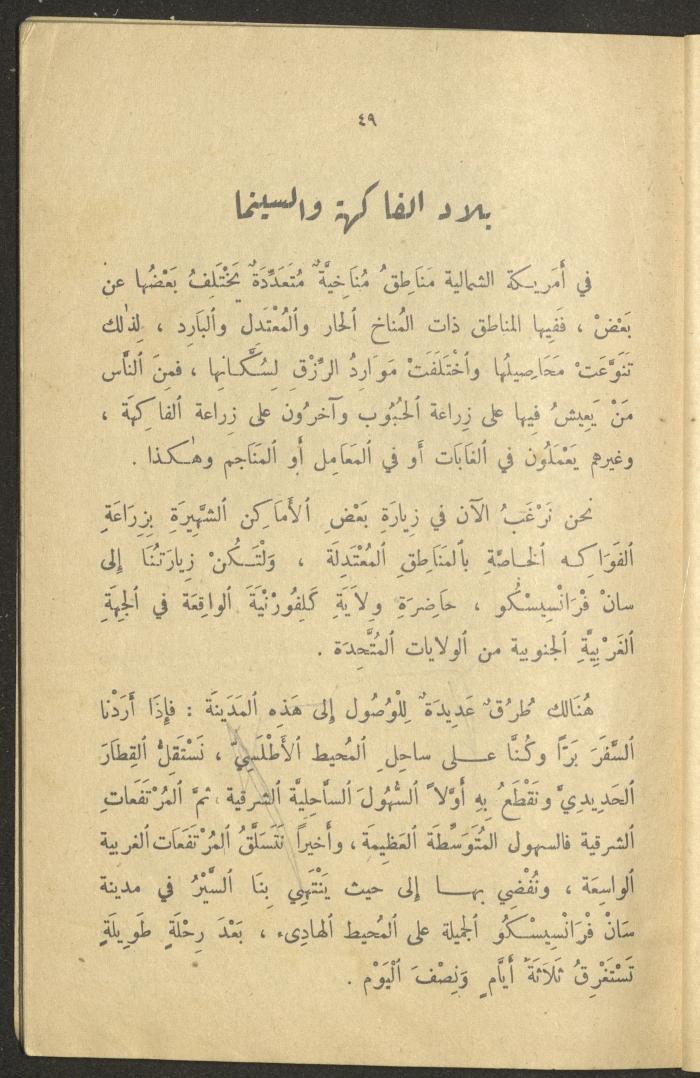 ٤٩
بلاد الفاكهة والسينما
في أَمَريكة الشمالية مَنَاطِقُ مُنَاخِيَّةٌ مُتَعَدِّدَةٌ يَخْتَلِفُ بَعْضُها عن
بَعْضْ ، فَفيها المناطق ذات المُناخ الحار والمُعْتَدل والبَارِد ، لِذٰلك
تَنَوَّعَتْ مَحَاصِيلُها وٱخْتَلَفَتْ مَوَارِدُ الرِّزْقِ لِسُكَّانِها ، فمِنَ ٱلنَّاس
مَنْ يَعِيشُ فِيها على زِراعة الحُبُوب وآخَرُون على زِراعة ٱلفاكِهَة ،
وغيرهم يَعْمَلُون في ٱلغَابَات أَو في ٱلمَعَامِل أَو ٱلمَنَاجم وهٰكذا .
نحن نَرْغَبُ الآن في زِيارَةِ بَعْضِ الأَمَاكِن ٱلشَّهِيرَةِ بِزِرَاعَةِ
ٱلفَوَاكِه الخاصَّةِ بٱلمَنَاطِقِ ٱلمُعْتَدِلَة ، وَلْتَكُنْ زِيارَتُنَا إِلى
سانْ فْرَانْسِيسْكُو ، حَاضِرَةِ وِلاَيَةِ كَلِفُورْنْيَةَ ٱلواقِعَة في ٱلجِهَةِ
ٱلغَرْبِيَّةِ ٱلجنوبية من ٱلولايات ٱلمُتَّحِدَة .
هُنَالك طُرُقٌ عَدِيدَةٌ لِلْوُصُول إِلى هَذِه ٱلمَدَينَة : فَإِذَا أَرَدْنا
ٱلسَّفَرَ بَرَّاً وكُنَّا عـلى ساحلِ ٱلمُحيط ٱلأَطْلَسِيّ ، نَسْتَقِلُّ ٱلقِطَارَ
ٱلحَدِيدِيَّ ونَقْطَعُ بِهِ أَوَّلاً ٱلسُّهُولَ ٱلسَّاحِلِيَّة ٱلشرقية ، ثمَّ ٱلمُرْتَفَعَاتِ
ٱلشرقية فالسهول المُتَوَسِّطَة ٱلعَظِيمَة ، وأَخيراً نَتَسَلَّقُ ٱلمُرْتَفَعَات ٱلغربية
ٱلواسِعَة ، ونُفْضِي بهـا إلى حيث يَنْتَهِي بِنَا ٱلسَّيْرُ في مدينة
سَانْ فْرَانْسِيسْكُو ٱلجميلة على ٱلمُحيط ٱلهادِىء ، بَعْدَ رِحْلَةٍ طَوِيلَةٍ
تَسْتَغْرِقُ ثَلاَثَةَ أَيَّامٍ وَنِصْفَ ٱلْيَوْم .